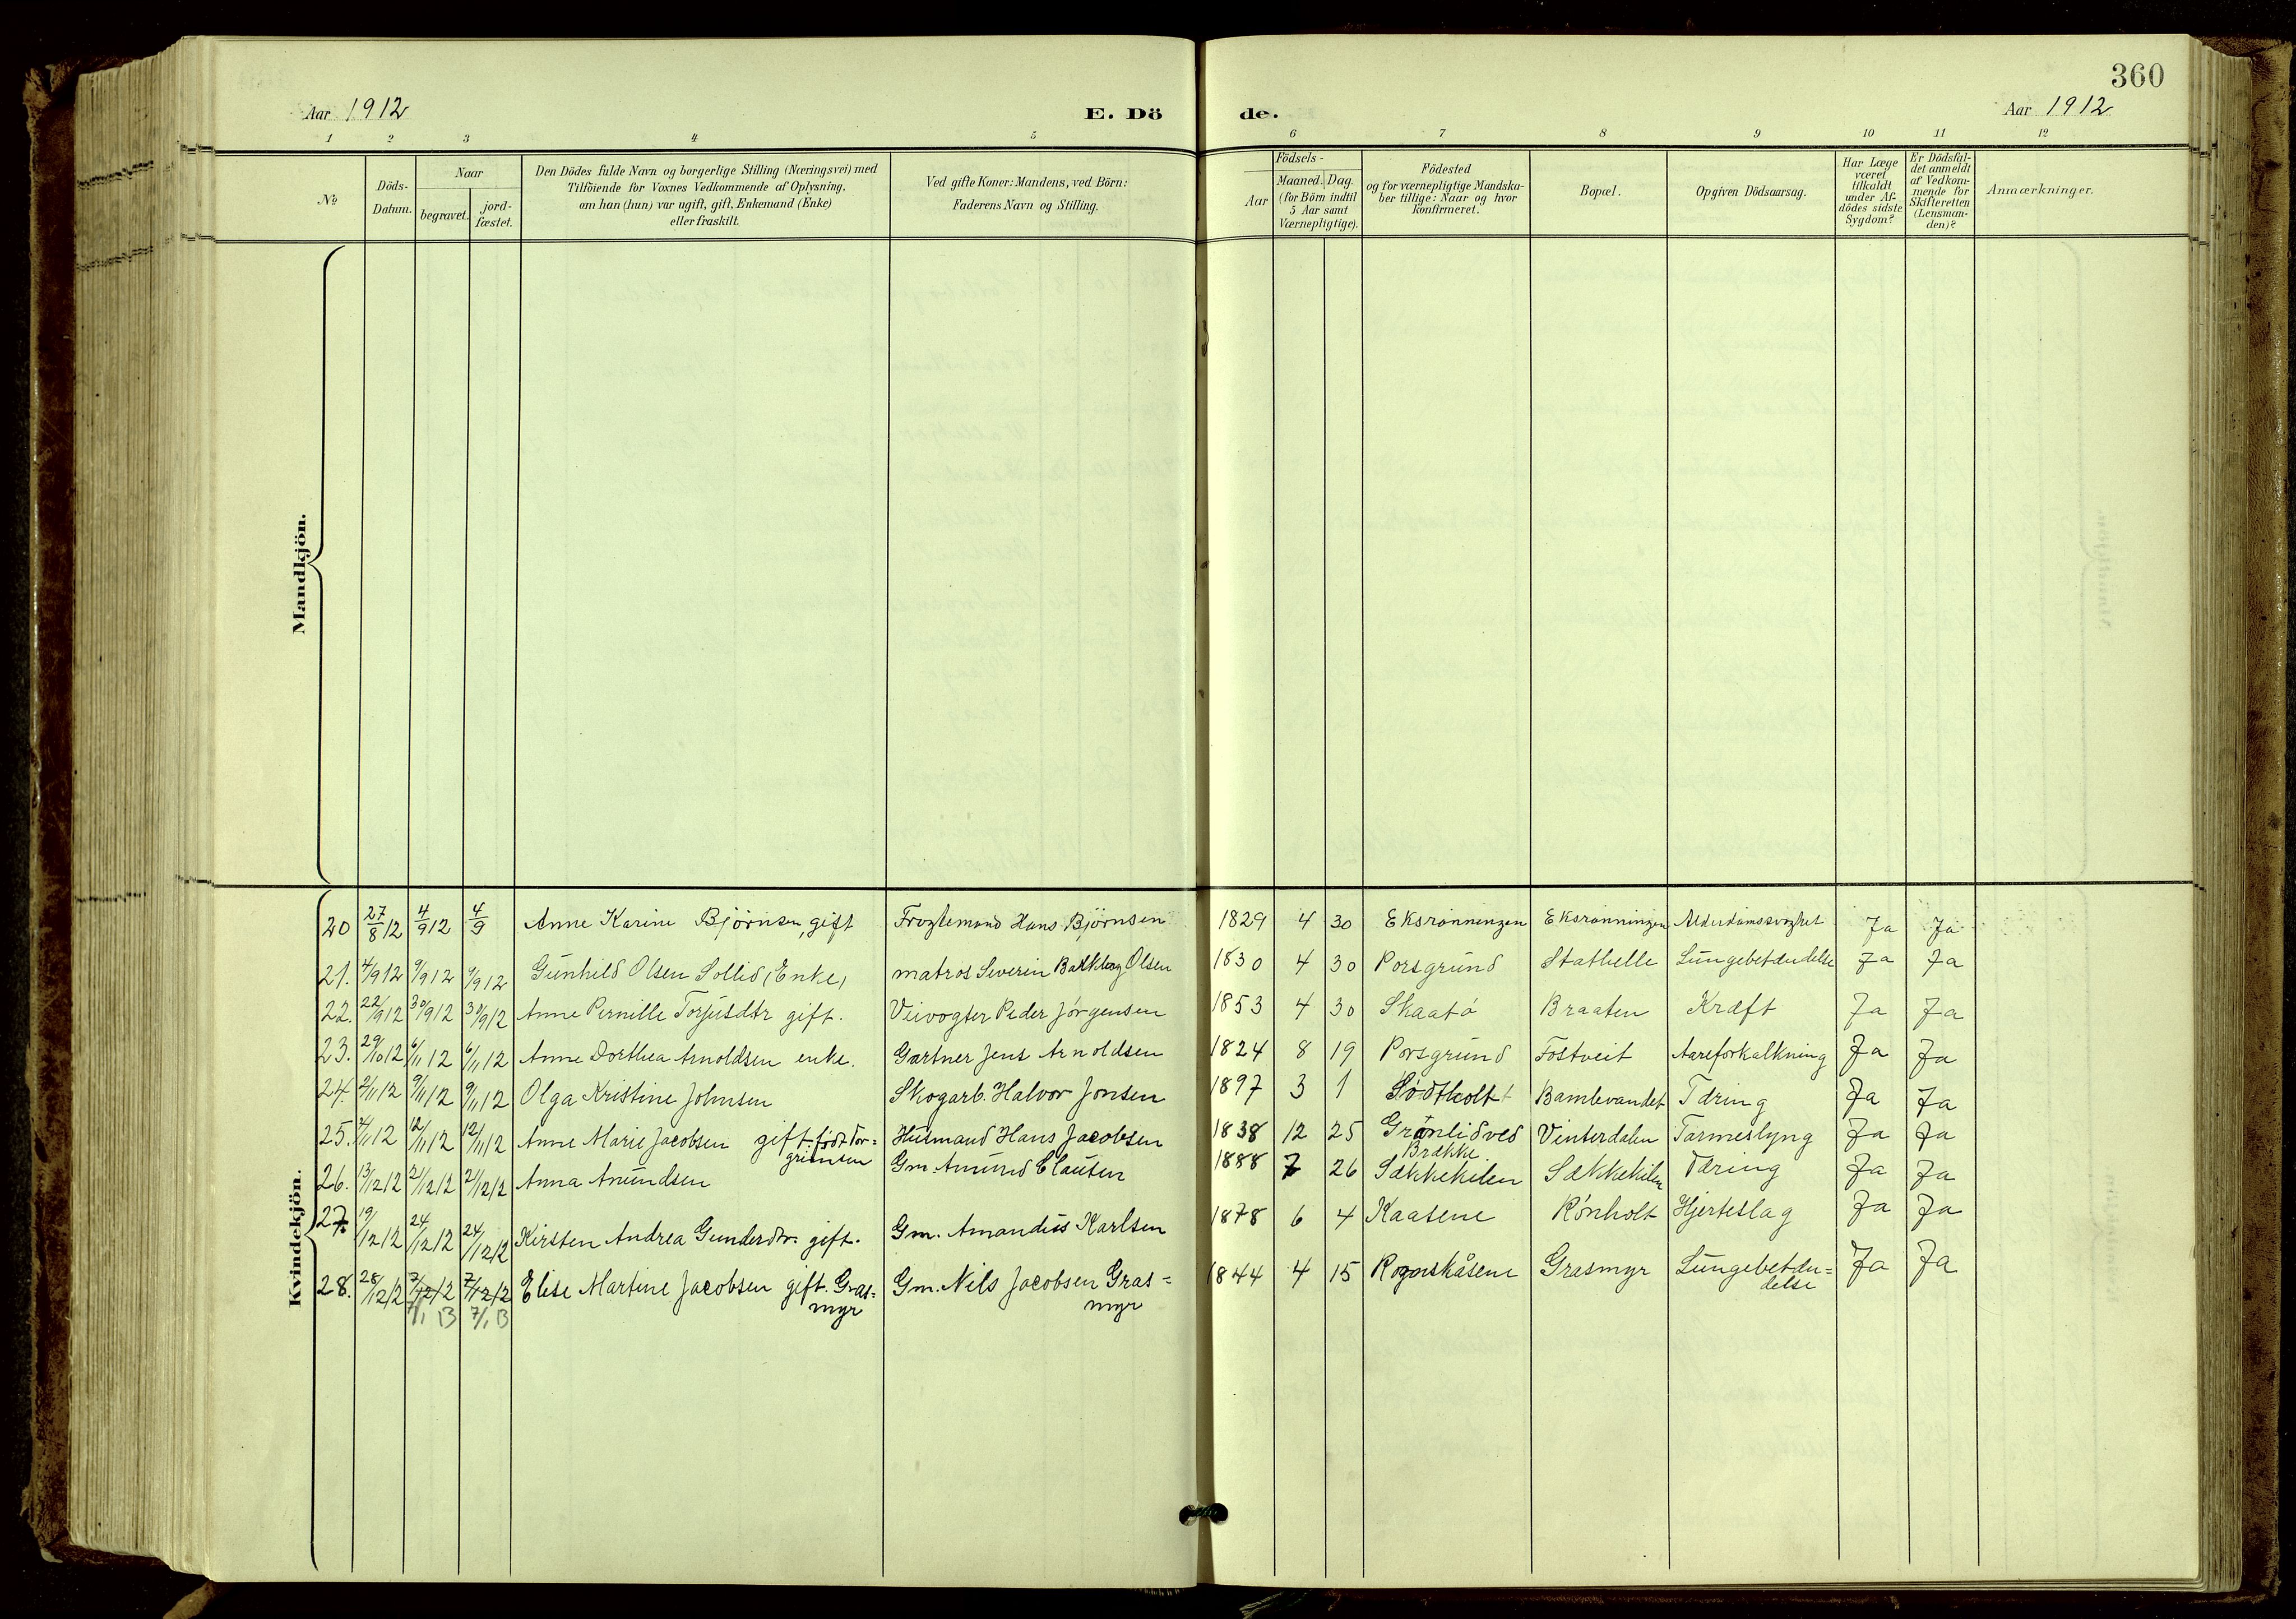 360
Aar 1912 E. Dö de. Aar 1912
1 2 3 4 5 6 7 8 9 10 11 12
№
Döds-
Datum.
Naar
begravet.
jord-
fæstet.
Den Dödes fulde Navn og borgerlige Stilling (Næringsvei) med
Tilföiende for Voxnes Vedkommende af Oplysning,
om han (hun) var ugift, gift, Enkemand (Enke)
eller fraskilt.
Ved gifte Koner: Mandens, ved Börn:
Faderens Navn og Stilling.
Födsels-
Aar
Maaned. Dag.
(for Börn indtil
5 Aar samt
Værnepligtige).
Födested
og for værnepligtige Mandska-
ber tillige: Naar og hvor
konfirmeret.
Bopæl.
Opgiven Dödsaarsag.
Har Læge
været
tilkaldt
under Af-
dödes sidste
Sygdom?
Er Dödsfal-
det anmeldt
af Vedkom-
mende for
Skifteretten
(Lensman-
den)?
Anmærkninger.
Mandkjön.
Kvindekjön.
20 27/8 12 4/9 12 4/9 Anne Karine Bjørnsen, gift Hans Bjørnsen 1829 4 30 Eksrønningen Eksrønningen Alderdomssvaghet Ja Ja
21. 4/9 12 9/9 12 9/9 12 Gunhild Olsen Sollid (Enke) matros Severin Olsen 1830 4 30 Porsgrund Stathelle Lungebetændelse Ja Ja
22. 22/9 12 30/9 12 30/9 12 Anne Pernille Torjusdtr gift. Veivogter Peder Jørgensen 1853 4 30 Skaatø Braaten Kræft Ja Ja
23. 29/10 12 6/11 12 6/11 12 Anne Dorthea Arnoldsen enke. Gartner Jens Arnoldsen 1824 8 19 Porsgrund Fostveit Aareforkalkning Ja Ja
24. 2/11 12 9/11 12 9/11 12 Olga Kristine Johnsen Skogarb. Halvor Jonsen 1897 3 1 Sødtholt Bamlevandet Tæring Ja Ja
25. 4/11 12 12/11 12 12/11 12 Anne Marie Jacobsen gift. født Tor= Husmand Hans Jacobsen 1838 12 25 Grønlidved Vinterdalen Tarmeslyng Ja Ja
grimsen Brække
26. 13/12 12 21/12 12 21/12 12 Anna Amundsen Gm. Amund Clausen 1888 7 26 Sækkekilen Sækkekilen Tæring Ja Ja
27. 19/12 12 24/12 12 24/12 12 Kirsten Andrea Gundersdtr. gift. Gm. Amandus Karlsen 1878 6 4 Kaasene Rønholt Hjerteslag Ja Ja
28. 28/12 12 7/12 12 7/12 12 Elise Martine Jacobsen gift. Gras= Gm. Nils Jacobsen Gras= 1844 4 15 Rognskåsene Grasmyr Lungebetæn= Ja Ja
7/1 13 7/1 13 myr myr delse